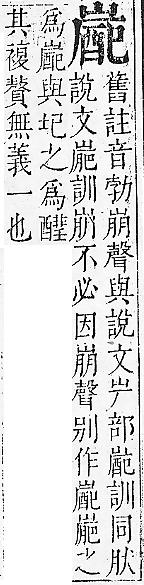 嶏
舊註音勃崩聲與說文屵部嶏訓同肰
說文訓崩不必因崩聲别作嶏之
爲嶏與圮之爲
其複贅無義一也